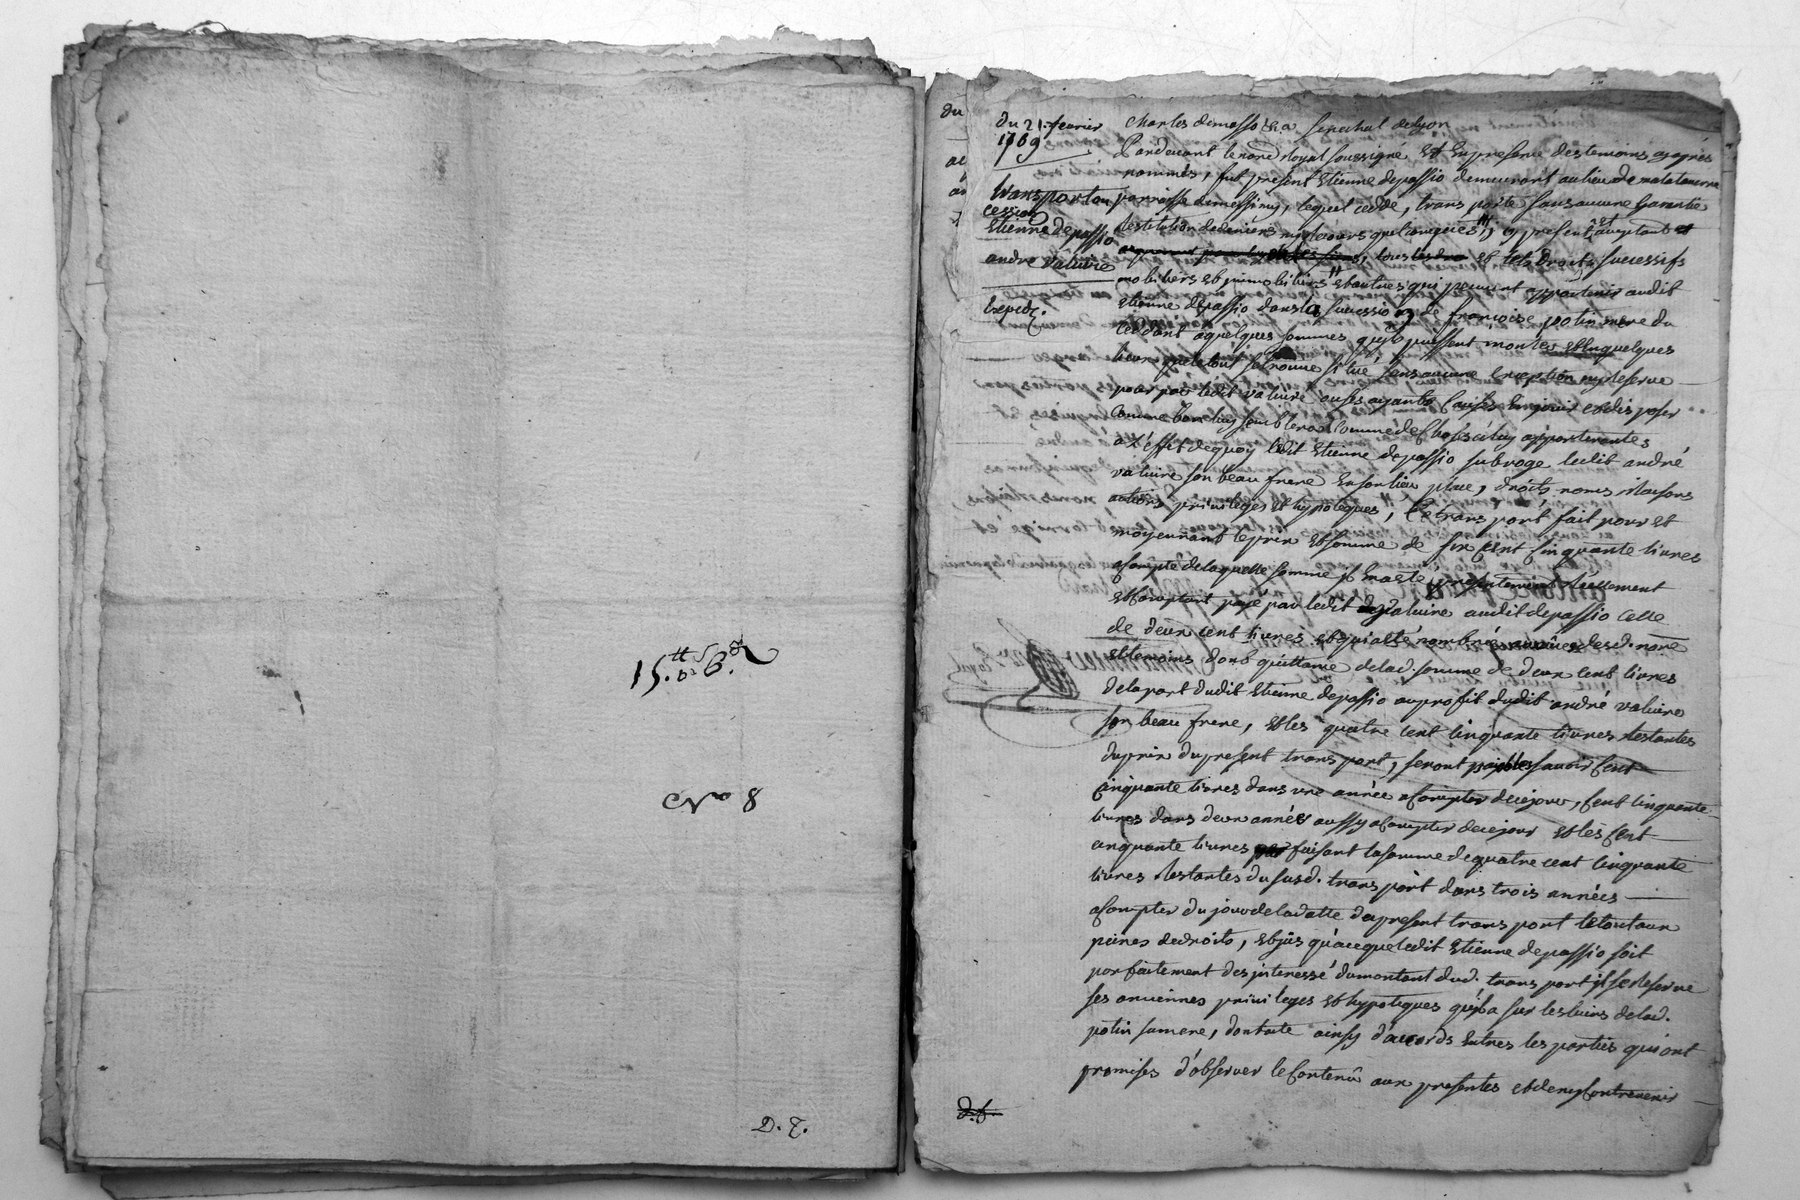 15.tt 5.s 6.d
N.o 8
D. 7.
du
du 21. fevrier
1769
transport ou
cession
Etienne depassio
andre valuire
Expedz.
Charles demasso &.a senechal de lyon
Pardevant le no.re Royal soussigné Et En presence des temoins cy après
nommés, fut present Etienne depassio demeurant au lieu de malataverne
parroisse de messimy, lequel cedde, transporte sans aucune garantie
Restitution de deniers ny recours quelconques, present et aceptant
tous les Et tels droits sucessifs
mobiliers et jmmobiliers Et autres qui peuvent appartenir audit
Etienne depassio dans la sucession de francoise potin mere du
Ceddant a quelques sommes qu'ils puissent montés Et En quelques
lieux que le tout se trouve situé sans aucune Exception ny Reserve
pour par ledit valuire ou ses ayants Causes En jouir et disposer
Comme bon luy semblera Comme de Choses à luy appartenantes
a l'effet de quoy ledit Etienne depassio subroge ledit andré
valuire son beau frere En son lieu place, droits noms Raisons
actions privileges Et hypoteques, Ce transport fait pour Et
moyennant le prix Et somme de six Cent Cinquante livres
a Compte de laquelle somme jl En a eté presentement Réellement
Et Comptant payé par ledit valuire audit depassio Celle
de deux cent livres Et qui a eté nombrée desd. no.re
Et temoins dont quittance de lad. somme de deux cent livres
de la part dudit Etienne depassio au profit dudit andré valuire
son beau frere, Et les quatre cent Cinquante livres Restantes
du prix du present transport, seront payables savoir Cent
Cinquante livres dans une année a Compter de ce jour, Cent Cinquante
livres dans deux années aussy a Compter de ce jour Et les Cent
Cinquante livres faisant la somme de quatre cent Cinquante
livres Restantes du susd. transport dans trois années
a Compter du jour de la datte du present transport le tout aux
peines de droits, Et jusqu'a ce que ledit Etienne depassio soit
parfaitement desjnteressé du montant dud. transport jl se Reserve
ses anciennes privileges Et hypoteques qu'jl a sur les biens de lad.
potin sa mere, dont acte ainsy d'accords Entres les parties qui ont
promises d'observer le Contenû aux presentes et de ny Contrevenir